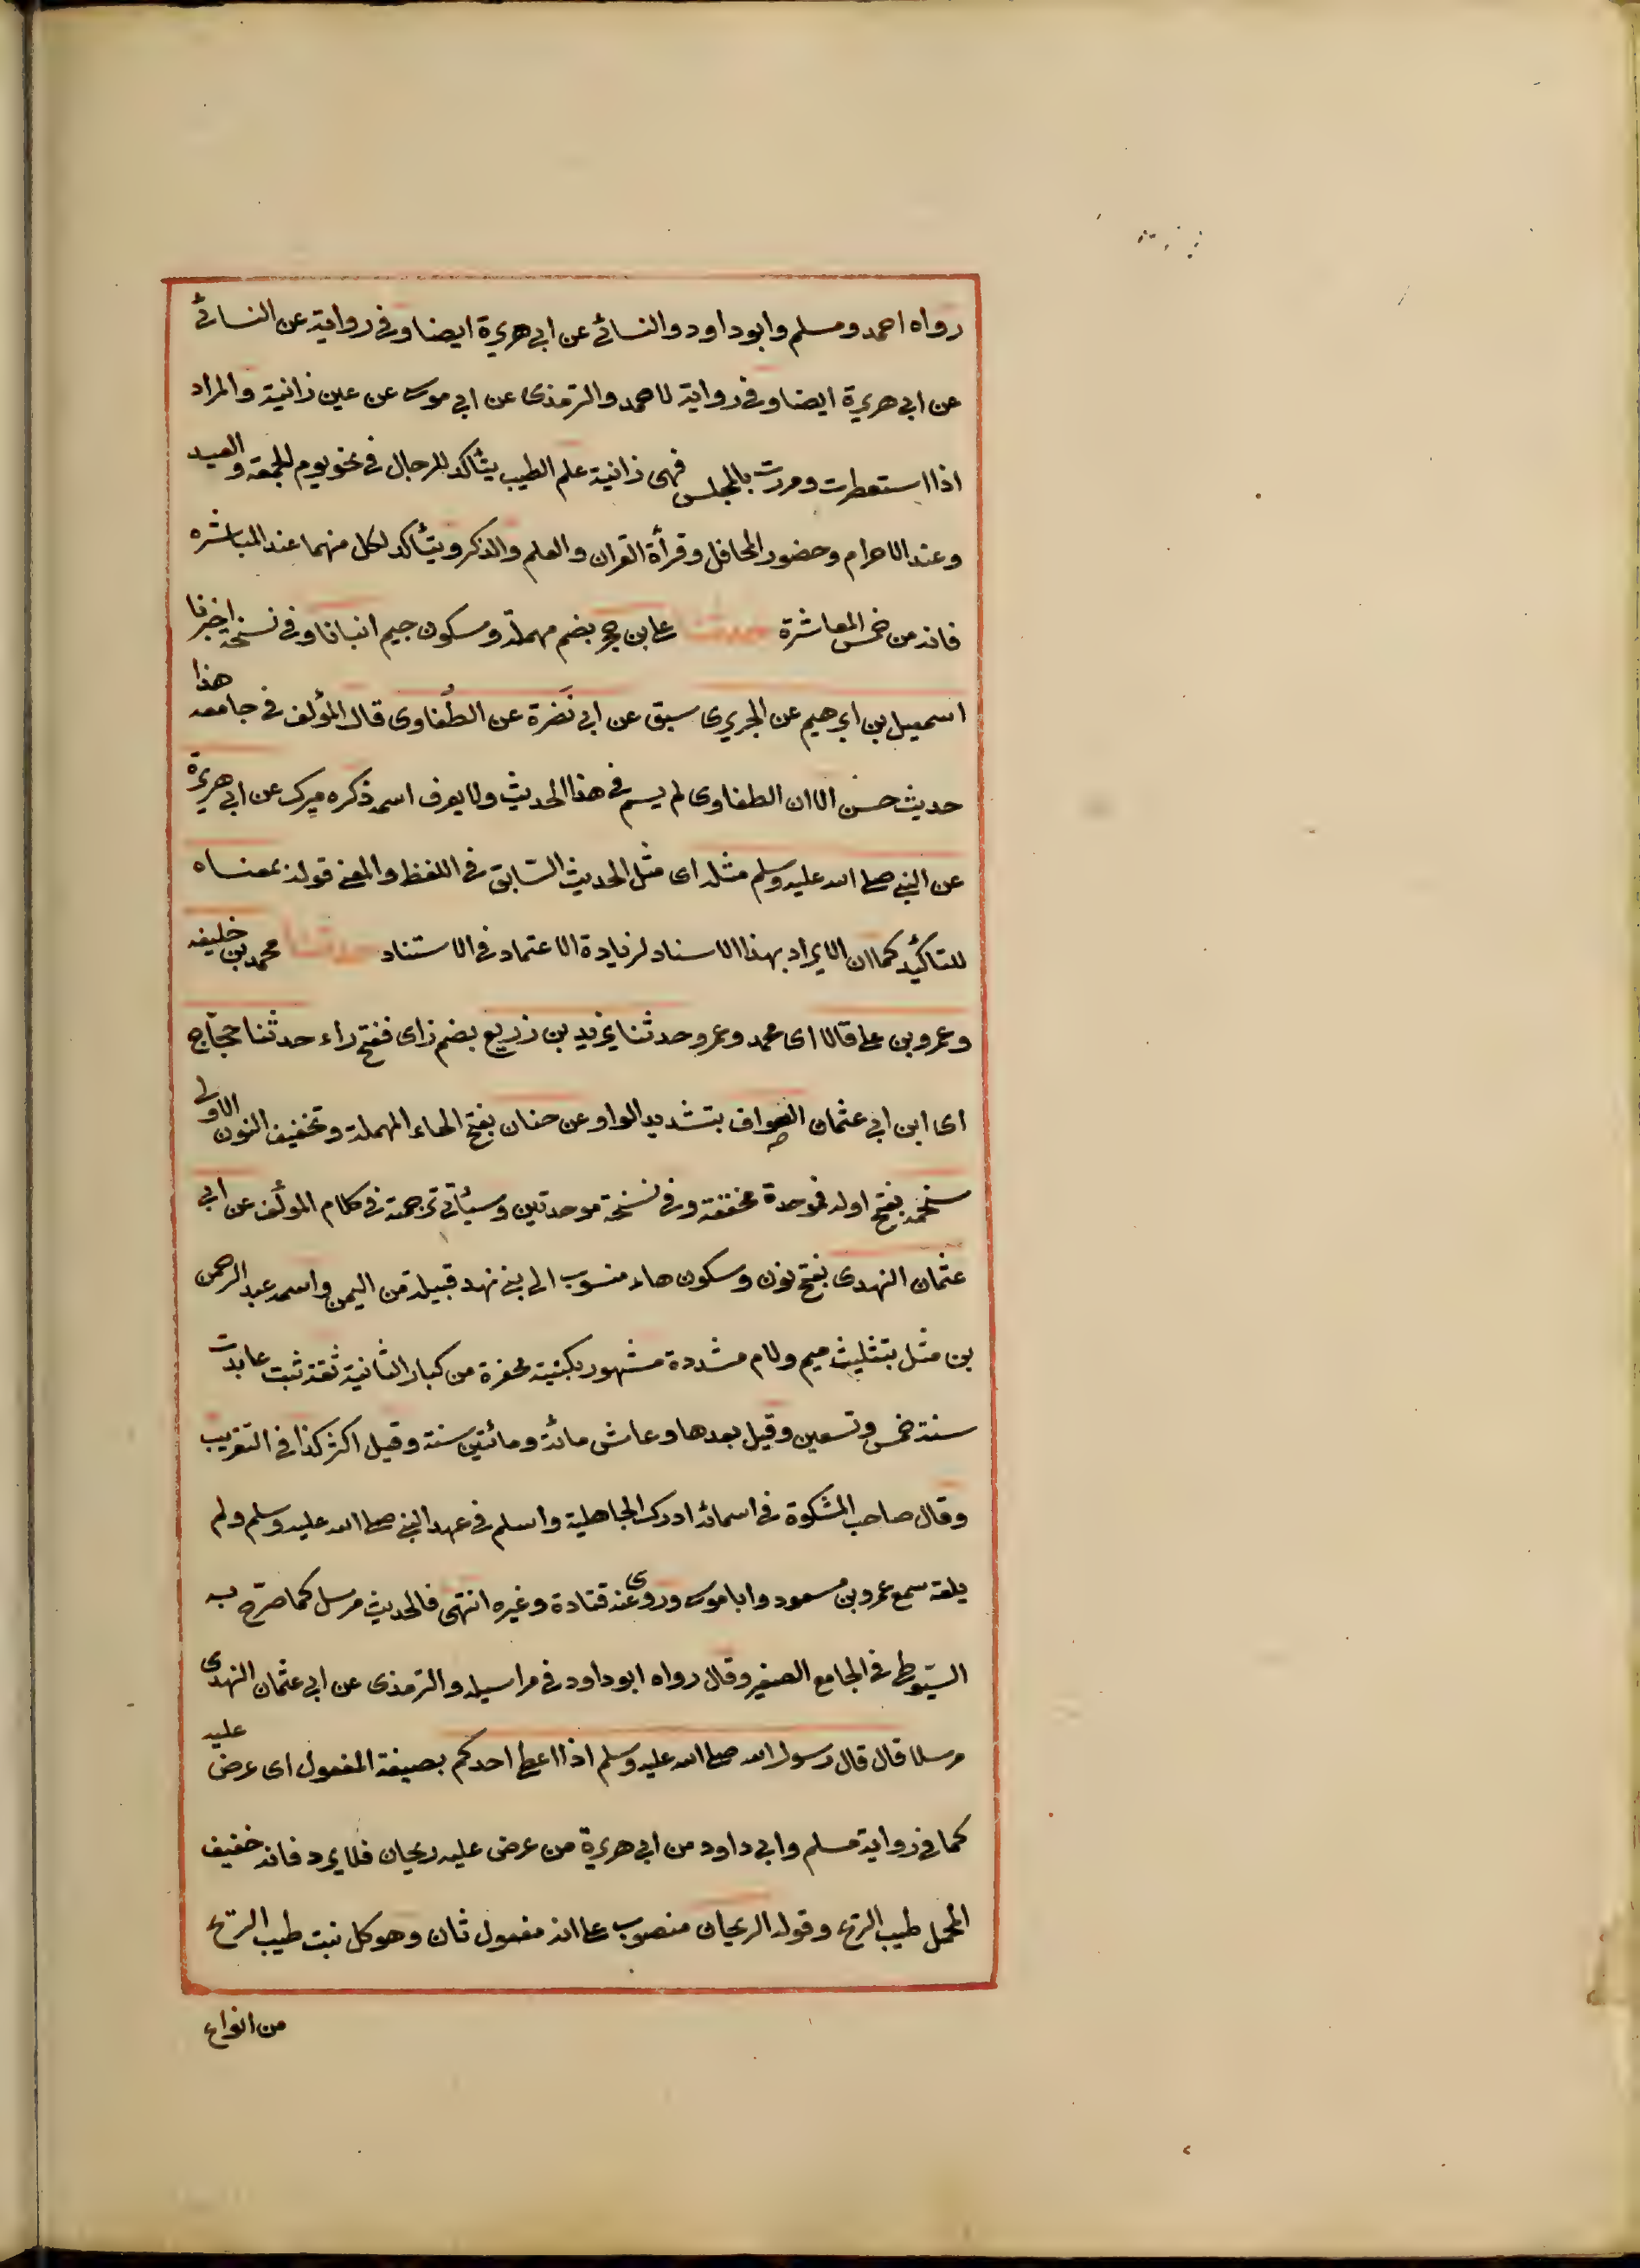 رواه احمد ومسلم وابوداود والنسائى عن ابى هريرة ايضا وفى رواية عن النسائى
عن ابى هريرة ايضا وفى رواية لاحمد والترمذى عن ابى موسى عن عين زانية والمراد
اذا استعطرت ومرت بالمجلس فهى زانية علم الطيب يتأكد للرجال فى نحو يوم الجمعة والعيد
وعند الاحرام وحضور المحافل وقرأة القران والعلم والذكر ويتأكد لكل منهما عند المباشره
فانه من المعاشرة حدثنا على بن حجر بضم مهملة وسكون جيم انبانا وفى نسخة اخبرنا
اسمعيل بن ابرهيم عن الجريرى سبق عن ابى نَضرة عن الطُفاوى قال المؤلف فى جامعه هذا
حديث حسن الا ان الطفاوى لم يسم فى هذا الحديث ولا يعرف اسمه ذكره ميرك عن ابى هريرة
عن النبى صلى الله عليه وسلم مثله اى مثل الحديث السّابق فى اللفظ والمعنى قوله بمعناه
للتأكيد كما ان الايراد بهذا الاسناد لزيادة الاعتماد فى الاستناد حدثنا محمد بن خليفه
وعمرو بن على قالا اى محمد وعمرو حدثنا يزيد بن زريع بضم زاى ففتح راء حدثنا حجّاج
اى ابن ابى عثمان الصواف بتشديد الواو عن حنان بفتح الحاء المهملة وتخفيف النون الاولى
بفتح اوله فموحدة مخففة وفى نسخة موحدتين وسيأتى ترجمته فى كلام المؤلف عن ابى
عثمان النهدى بفتح نون وسكون هاء منسوب الى بنى نهد قبيلة من اليمن واسمه عبد الرحمن
بن مثل بتثليث ميم ولام مشددة مشهور بكنيته من كبار الثانية ثقة ثبت عابد
سنة خمس وتسعين وقيل بعدها وعاش مائة ومائتين سنة وقيل اكثر كذا فى التقريب
وقال صاحب المشكوة فى اسمائه ادرك الجاهلية واسلم فى عهد النبى صلى الله عليه وسلم ولم
يلقه سمع عمرو بن مسعود وابا موسى وروى عنه قتادة وغيره انتهى فالحديث مرسل كما صرّح به
السيّوطى فى الجامع الصغير وقال رواه ابوداود فى مراسيله والترمذى عن ابى عثمان النهدى
مرسلا قال قال رسول الله صلى الله عليه وسلم اذا اعطى احدكم بصيغة المفعول اى عرض عليه
كما فى رواية مسلم وابى داود من ابى هريرة من عرض عليه ريحان فلا يرد فانه خفيف
المحمل طيب الريح وقوله الريحان منصوب على انه مفعول ثان وهو كل نبت طيب الريح
من انواع